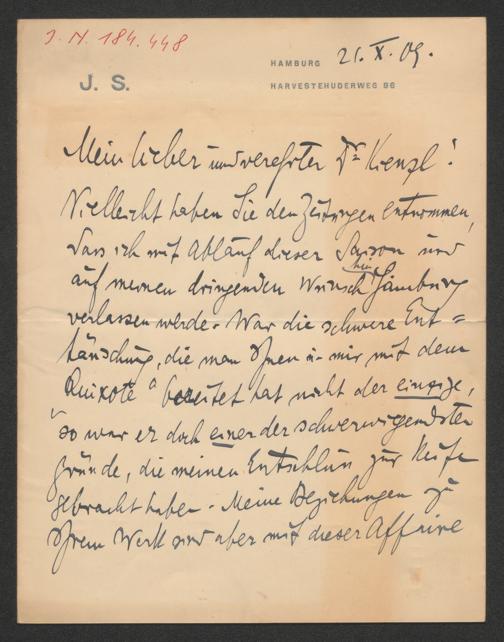 J. N. 184.448
J. S.
HAMBURG 21. X. 09.
HARVESTEHUDERWEG 96
Mein lieber und verehrter Dr Kienzl!
Vielleicht haben Sie den Zeitungen entnommen,
dass ich mit Ablauf dieser Saison und
auf meinen dringenden Wunsch hin Hamburg
verlassen werde. War die schwere Ent=
täuschung, die man Ihnen u. mir mit dem
"Quixote" bereitet hat nicht der einzige,
so war er doch einer der schwerwiegendsten
Gründe, die meinen Entschluss zur Reife
gebracht haben. Meine Beziehungen zu
Ihrem Werk sind aber mit dieser Affaire